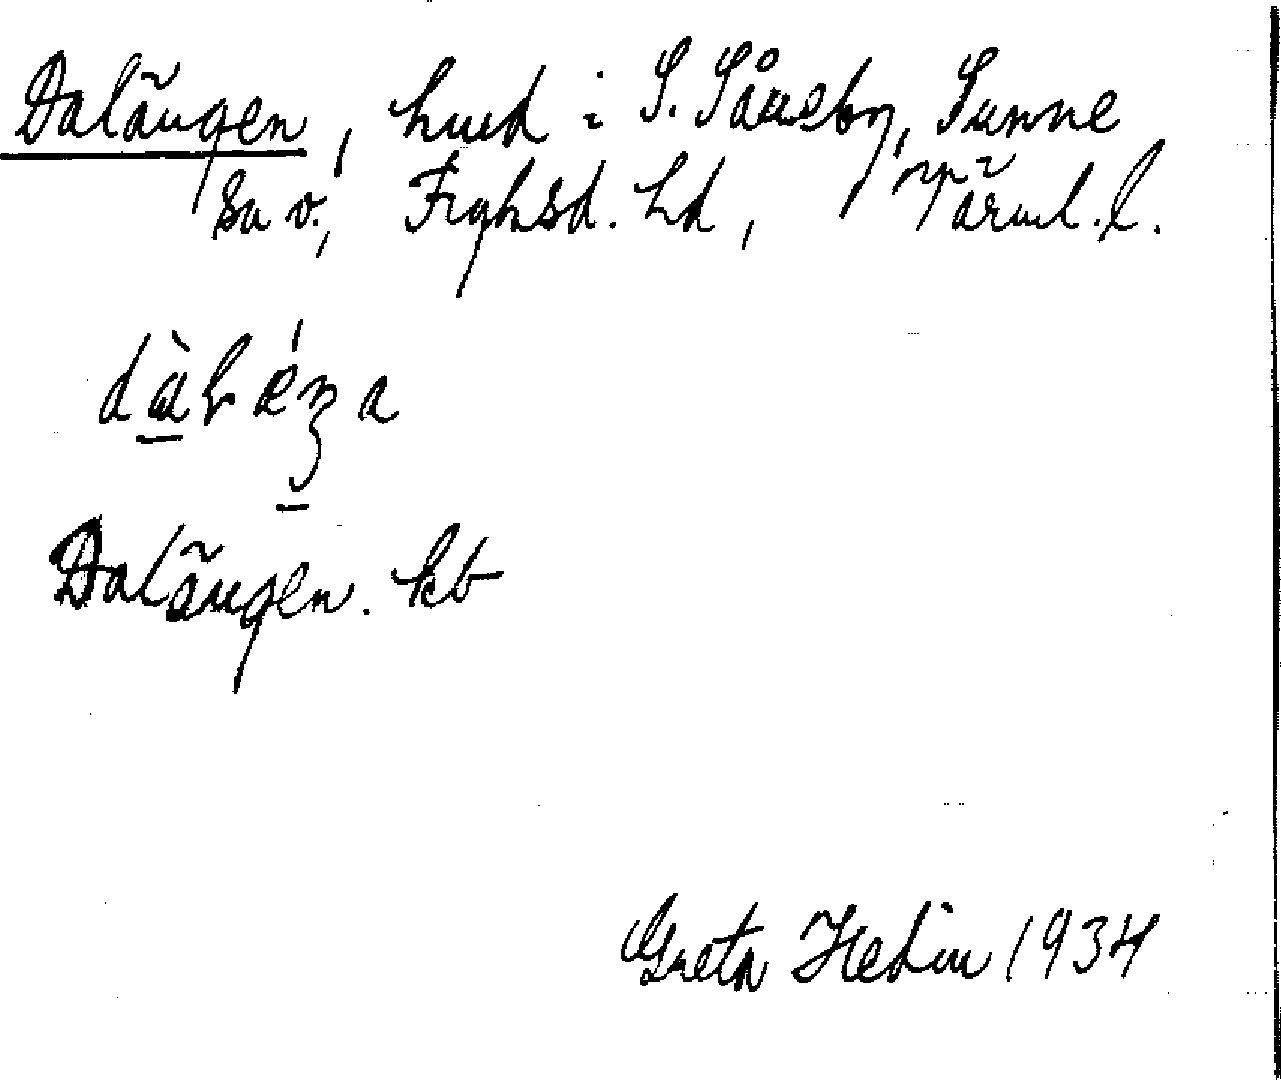 Dalängen, hmd i S. Såneby, Sunne
sn v., Fryksd. hd, Värml. l.
Dalängen. kb
Greta Hedin 1934